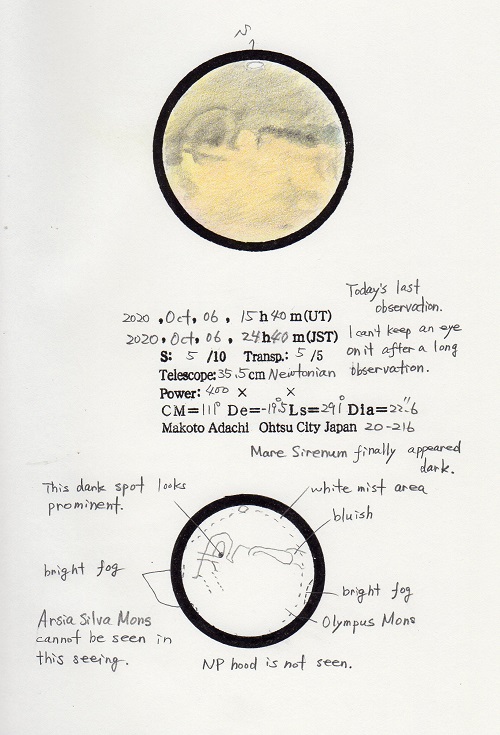 S
2020, Oct, 06, 15h40m(UT)
2020, Oct, 06, 24h40m(JST)
S: 5 /10 Transp.: 5 /5
Telescope: 35.5cm Newtonian
Power: 400 × ×
CM=111° De=-19.°5 Ls=291° Dia=22."6
Makoto Adachi Ohtsu City Japan 20-216
Today's last
observation.
I can't keep an eye
on it after a long
observation.
Mare Sirenum finally appeared
dark.
This dark spot looks
prominent.
white mist area
bluish
bright fog
bright fog
Olympus Mons
Arsia Silva Mons
cannot be seen in
this seeing.
NP hood is not seen.